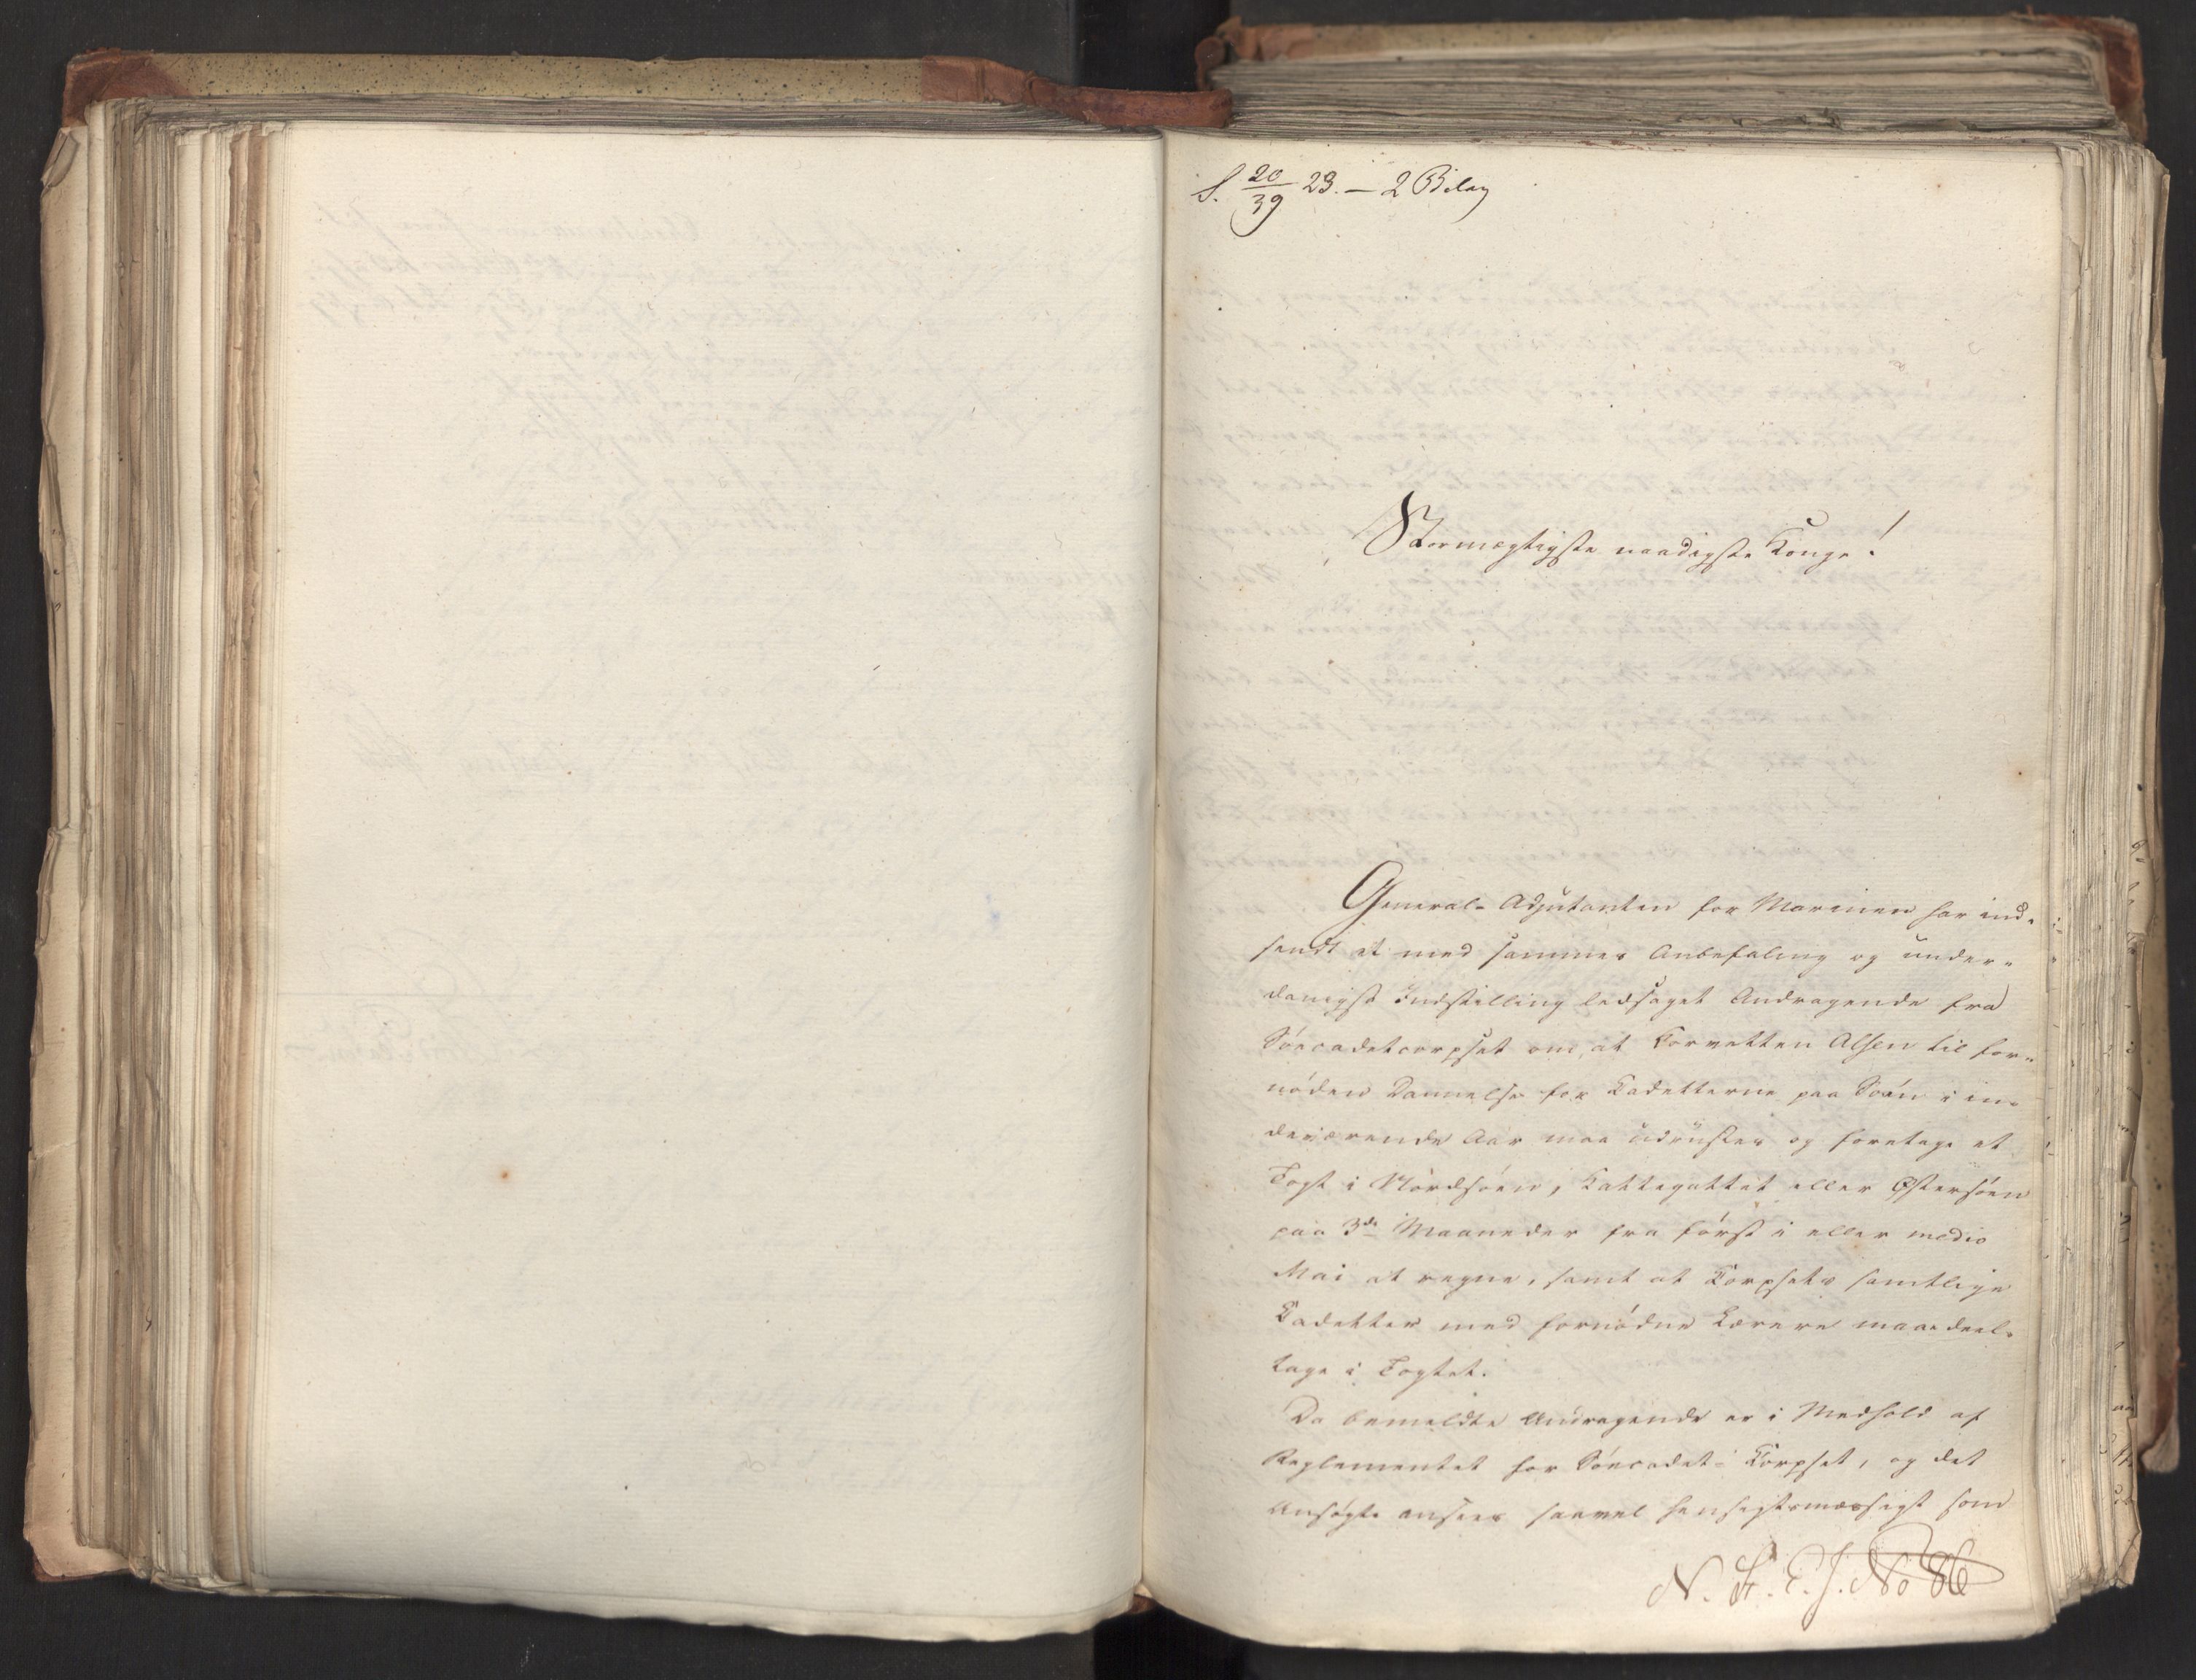 S. 20/39 23. — 2 Bilag
Stormægtigste naadigste Konge!
General-Adjutanten for Marinen har ind-
sendt et med sammes Anbefaling og under-
danigst Indstilling ledsaget Andragende fra
Søecadetcorpset om, at Corvetten Alsen til for-
nöden Dannelse for Cadetterne paa Søen i in-
deværende Aar maa udrustes og foretage et
Togt i Nordsöen, Kattegattet eller Østersöen
paa 3de Maaneder fra först i eller medio
Mai at regne, samt at Corpsets samtlige
Cadetter med fornödne Lærere maae deel-
tage i Togtet.
Da bemeldte Andragende er i Medhold af
Reglementet for Söecadet-Corpset, og det
Ansögte ansees saavel hensigtsmæssigt som
N. St. E. J. No 86